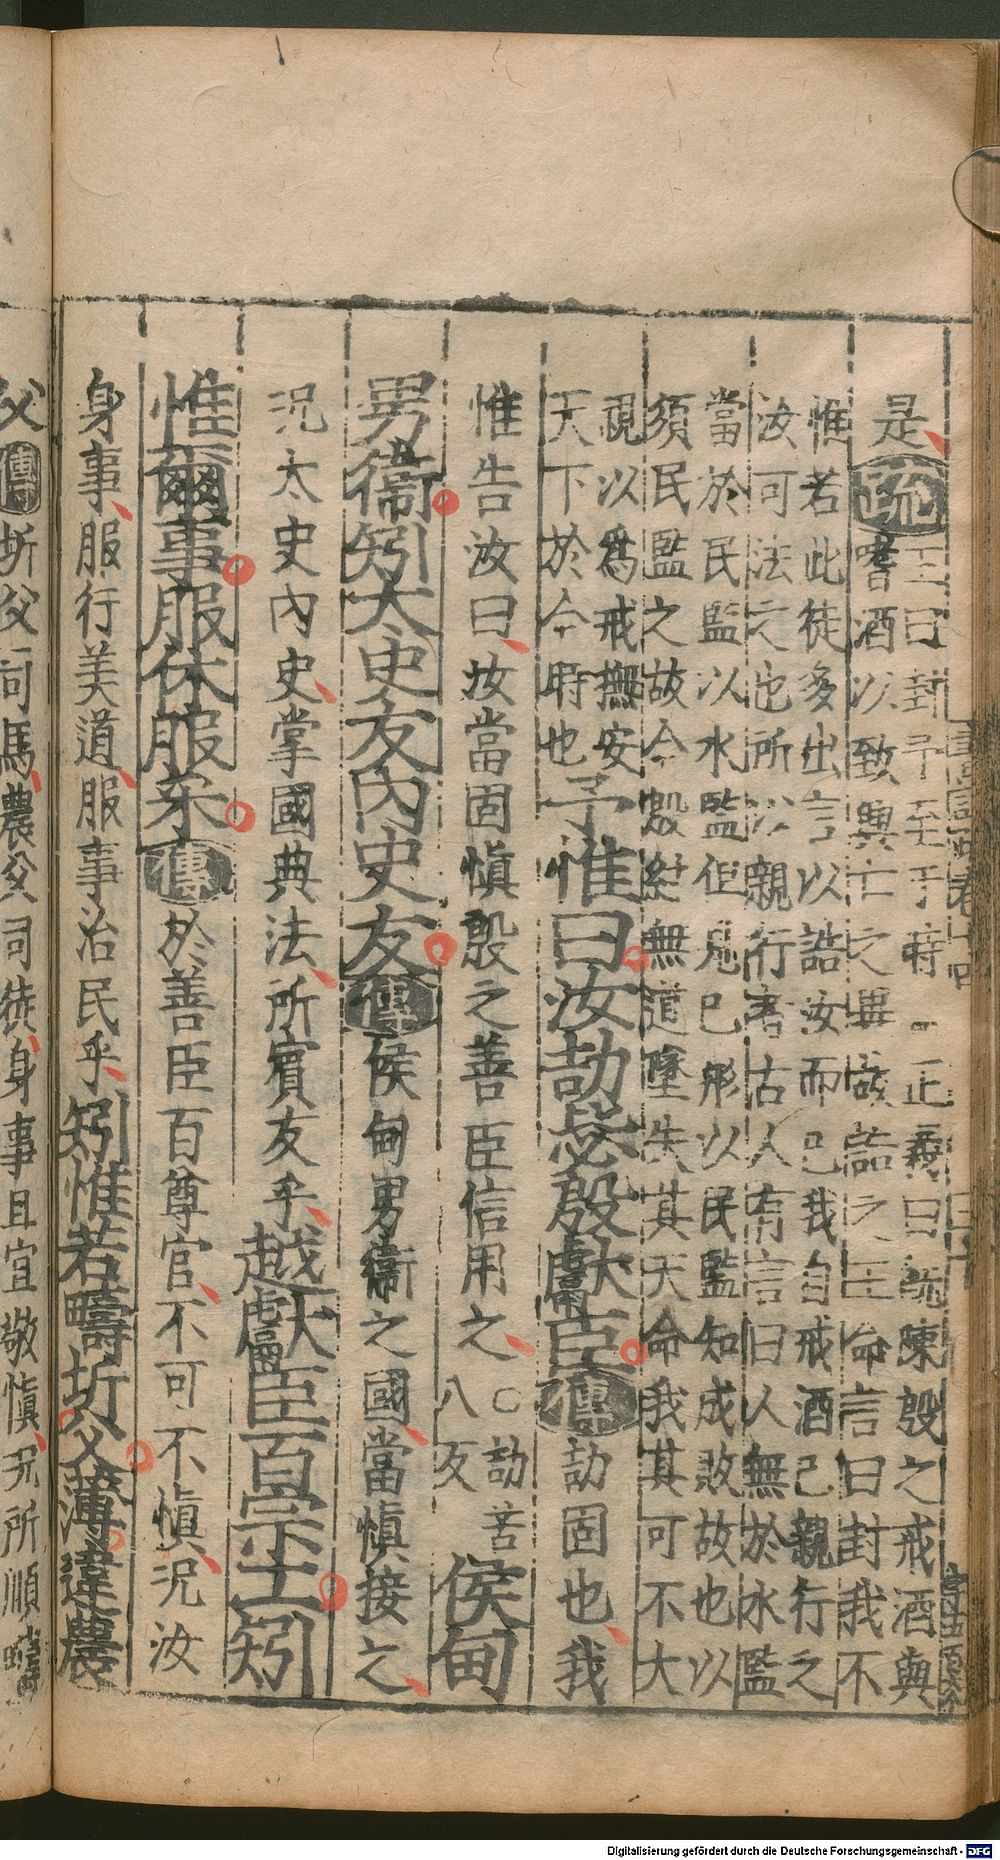 是疏王曰封予至于時○正義曰既陳殷之戒酒與
嗜酒以致興亡之異故誥之王命言曰封我不
惟若此徒多出言以誥汝而已我自戒酒已親行之
汝可法之也所以親行者古人有言曰人無於水監
當於民監以水監但見己形以民監知成敗故也以
須民監之故今殷紂無道墜失其天命我其可不大
視以爲戒撫安
天下於今時也予惟曰汝劼毖殷獻臣傳劼固也我
惟告汝曰汝當固慎殷之善臣信用之○劼苦
八反侯甸
男衛矧太史友內史友傳侯甸男衛之國當慎接之
況太史內史掌國典法所賓友乎越獻臣百宗工矧
惟爾事服休服采傳於善臣百尊官不可不慎況汝
身事服行美道服事治民乎矧惟若疇圻父薄違農
父傳圻父司馬農父司徒身事且宜敬慎況所順疇
Digitalisierung gefördert durch die Deutsche Forschungsgemeinschaft - DFG